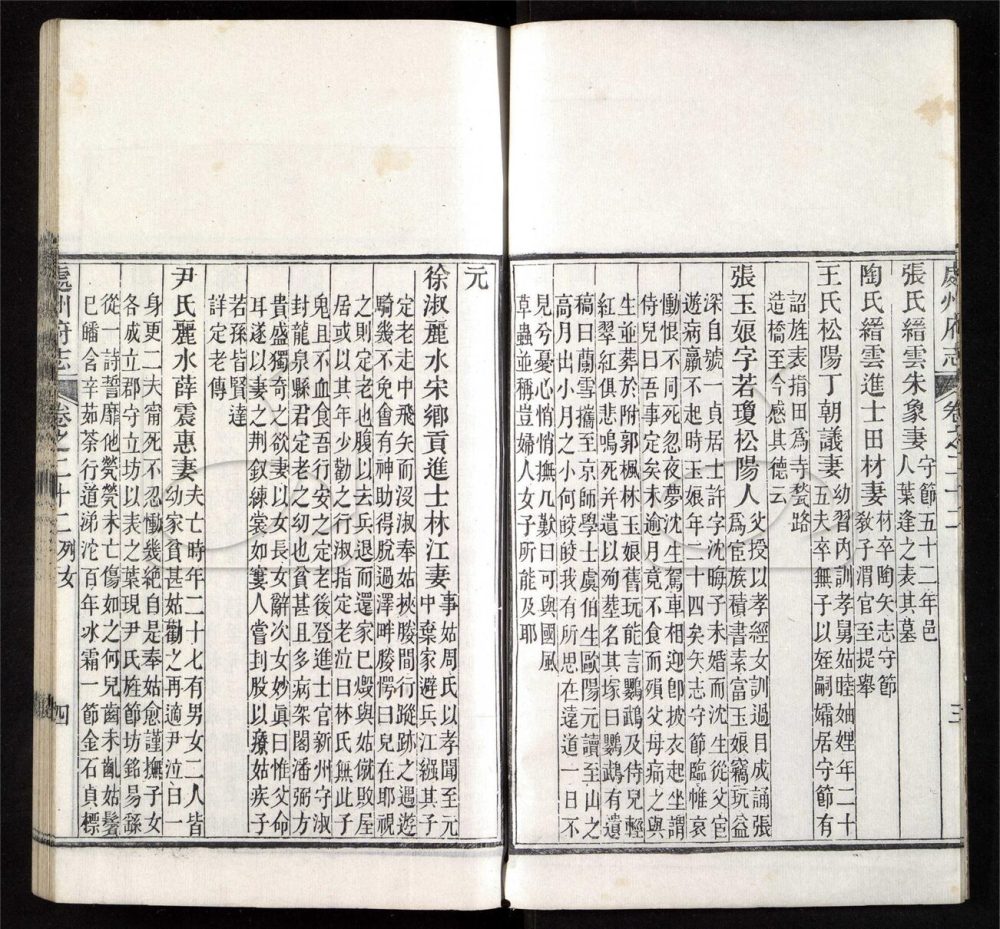 處州府志 卷之二十二 三
張氏縉雲朱象妻守節五十二年邑
人葉逢之表其墓
陶氏縉雲進士田材妻材卒陶矢志守節
教子渭官至提舉
王氏松陽丁朝議妻幼習內訓孝舅姑睦妯娌年二十
五夫卒無子以姪嗣孀居守節有
詔旌表捐田爲寺甃路
造橋至今感其德云
張玉娘字若瓊松陽人父授以孝經女訓過目成誦張
爲宦族積書素富玉娘竊玩益
深自號一貞居士許字沈晦子未婚而沈生從父宦
遊病羸不起時玉娘年二十四矣矢志守節臨帷哀
慟恨不同死忽夜夢沈生駕車相迎卽披衣起坐謂
侍兒曰吾事定矣未逾月竟不食而殞父母痛之與
生並葬於附郭楓林玉娘舊玩能言鸚鵡及侍兒輕
紅翠紅俱悲鳴死并遣以殉葬名其塚曰鸚鵡有遺
稿曰蘭雪攜至京師學士虞伯生歐陽元讀至山之
高月出小月之小何皎皎我有所思在遠道一日不
見兮憂心悄悄撫几歎曰可與國風
草蟲並稱豈婦人女子所能及耶
元
徐淑麗水宋鄉貢進士林江妻事姑周氏以孝聞至元
中棄家避兵江緥其子
定老走中飛矢而沒淑奉姑挾媵間行蹤跡之遇遊
騎幾不免會有神助得脫過澤畔媵愕曰兒在耶視
之則定老也腹以去兵退而還家已燬與姑僦敗屋
居或以其年少勸之行淑指定老泣曰林氏無此子
鬼且不血食吾行安之定老後登進士官新州守淑
封龍泉縣君定老之幼也貧甚且多病架閣潘弼方
貴盛獨奇之欲妻以女長女辭次女妙眞曰惟父命
耳遂以妻之荆釵練裳如寠人嘗刲股以療姑疾子
若孫皆賢達
詳定老傳
尹氏麗水薛震惠妻夫亡時年二十七有男女二人皆
幼家貧甚姑勸之再適尹泣曰一
身更二夫甯死不忍慟幾絕自是奉姑愈謹撫子女
各成立郡守立坊以表之葉現尹氏旌節坊銘易繇
從一詩誓靡他煢煢未亡傷如之何兒齒未齔姑鬢
巳皤含辛茹荼行道涕沱百年冰霜一節金石貞標
處州府志 卷之二十二 列女 四